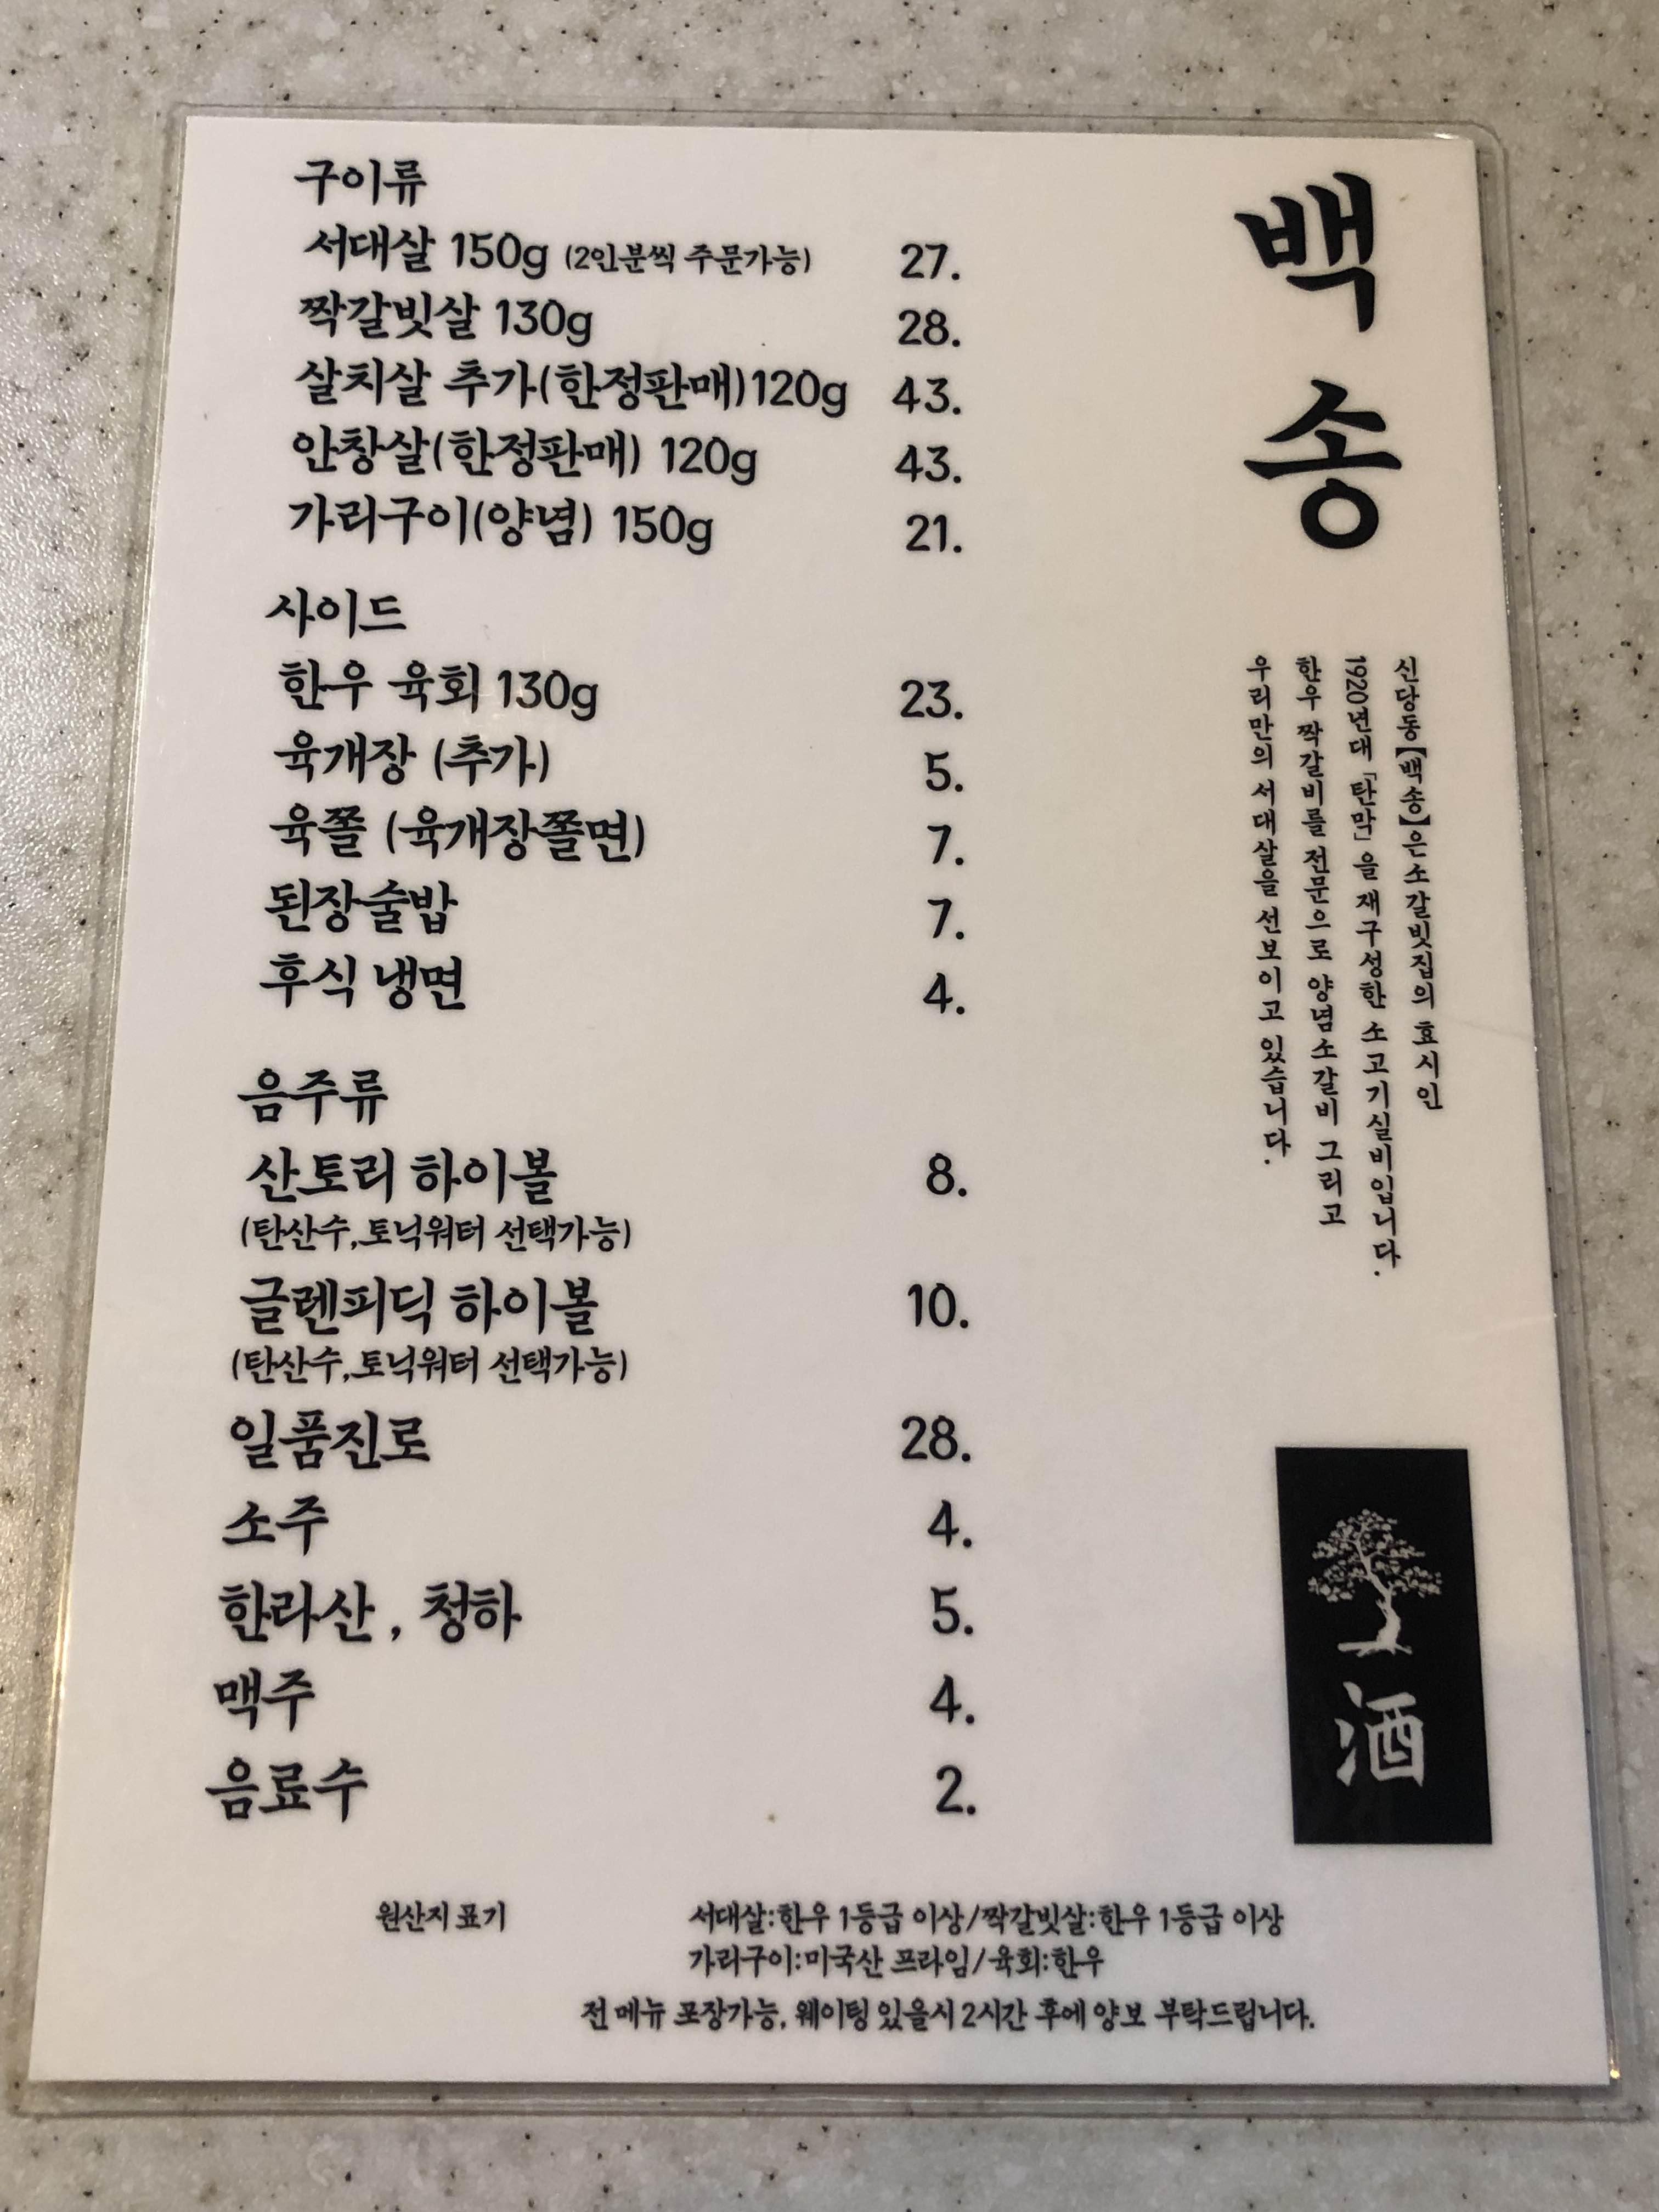 백송
신당동【백송】은 소갈빗집의 효시인
1920년대 「탄막」을 재구성한 소고기실비입니다.
한우 짝갈비를 전문으로 양념소갈비 그리고
우리만의 서대살을 선보이고 있습니다.
구이류
서대살 150g (2인분씩 주문가능) 27.
짝갈빗살 130g 28.
살치살 추가(한정판매)120g 43.
안창살(한정판매) 120g 43.
가리구이(양념) 150g 21.
사이드
한우 육회 130g 23.
육개장 (추가) 5.
육쫄 (육개장쫄면) 7.
된장술밥 7.
후식 냉면 4.
음주류
산토리 하이볼 8.
(탄산수,토닉워터 선택가능)
글렌피딕 하이볼 10.
(탄산수,토닉워터 선택가능)
일품진로 28.
소주 4.
한라산 , 청하 5.
맥주 4.
음료수 2.
酒
원산지 표기 서대살:한우 1등급 이상/짝갈빗살:한우 1등급 이상
가리구이:미국산 프라임/육회:한우
전 메뉴 포장가능, 웨이팅 있을시 2시간 후에 양보 부탁드립니다.